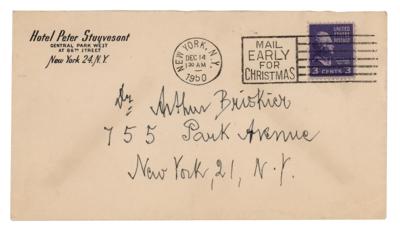 Hotel Peter Stuyvesant
CENTRAL PARK WEST
AT 86TH STREET
New York 24, N.Y.
NEW YORK, N.Y.
DEC 14
1950
MAIL
EARLY
FOR
CHRISTMAS
UNITED STATES
POSTAGE
3 CENTS 3
Dr Arthur
755 Park Avenue
New York, 21, N.Y.